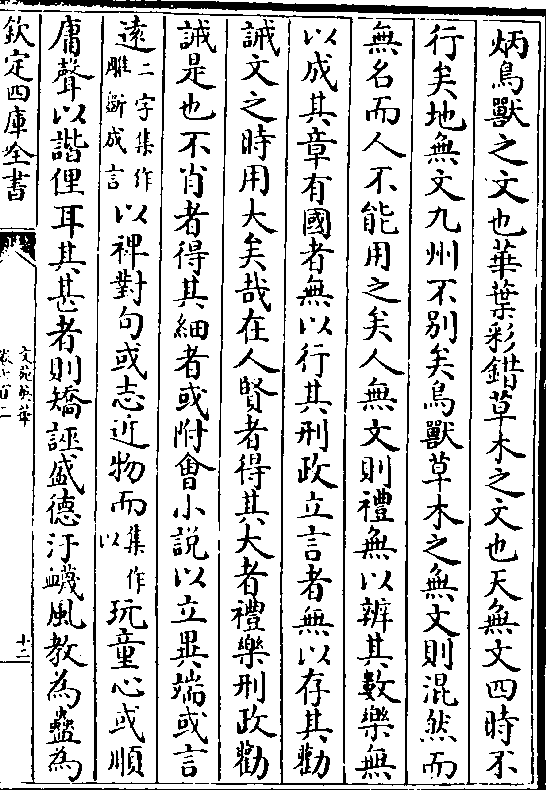 炳鳥獸之文也華葉彩錯草木之文也天無文四時不
行矣地無文九州不别矣鳥獸草木之無文則混然而
無名而人不能用之矣人無文則禮無以辨其數樂無
以成其章有國者無以行其刑政立言者無以存其勸
誡文之時用大矣哉在人賢者得其大者禮樂刑政勸
誡是也不肖者得其細者或附㑹小說以立異端或言
遠二字集作雕斲成言以裨對句或志近物而集作以玩童心或順
庸聲以諧俚耳其甚者則矯誣盛德汙衊風教為蠱為
欽定四庫全書
文苑英華
卷七百二
十二